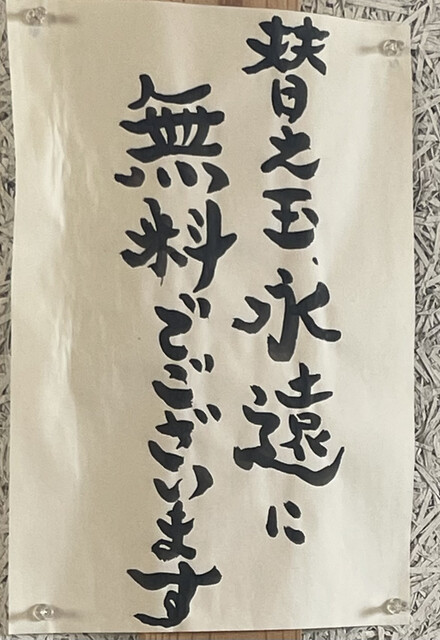 替え玉、永遠に
無料でございます